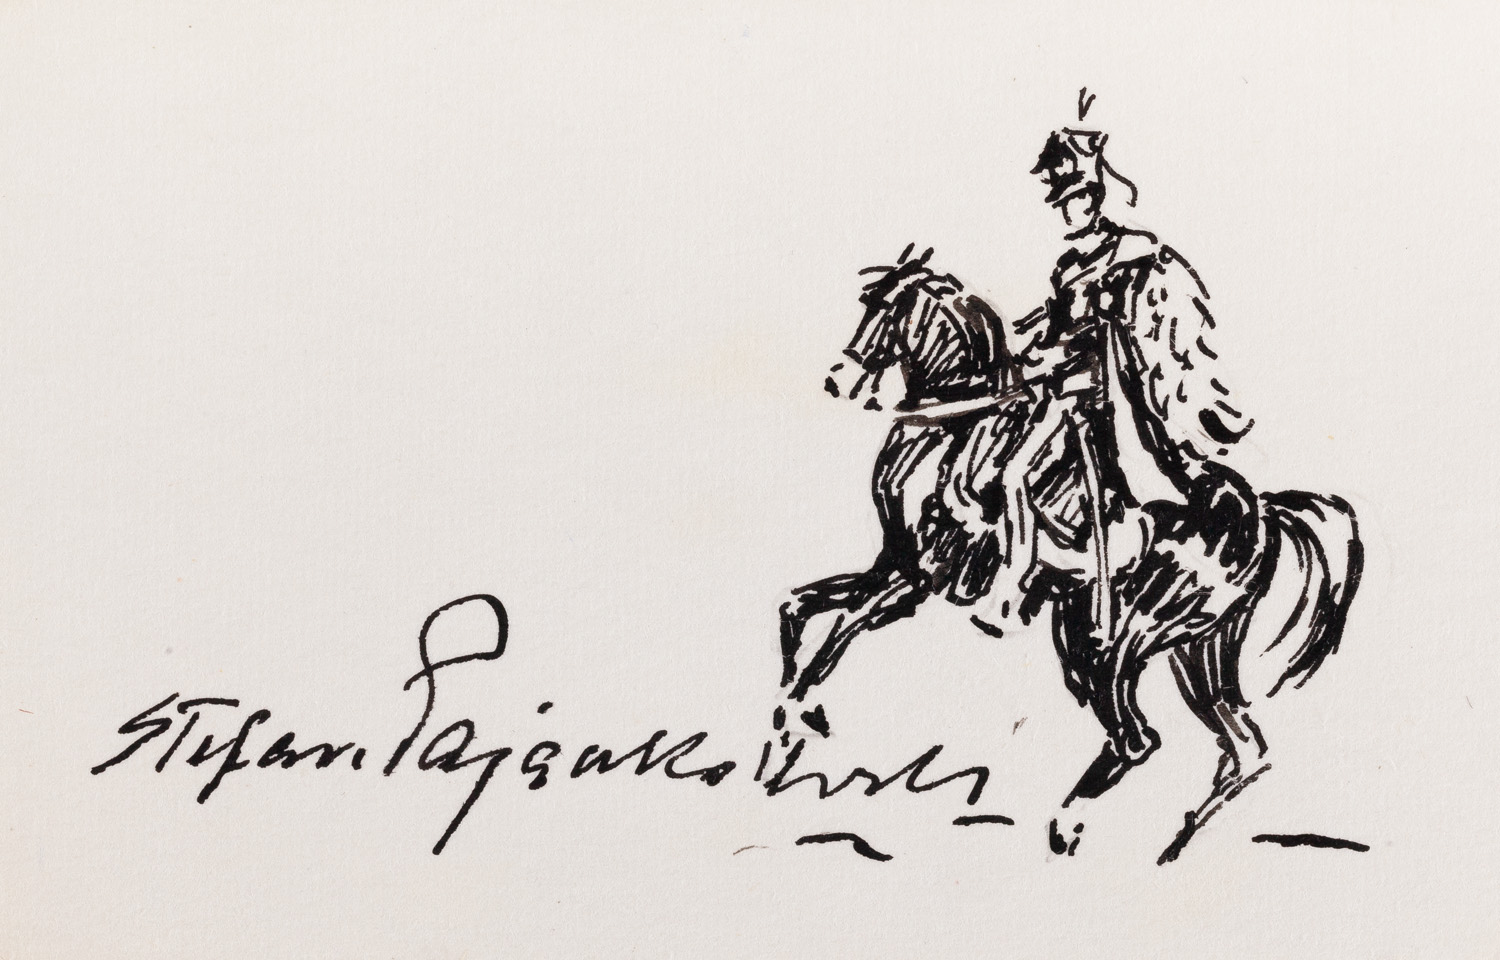 Stefan Pająkowski